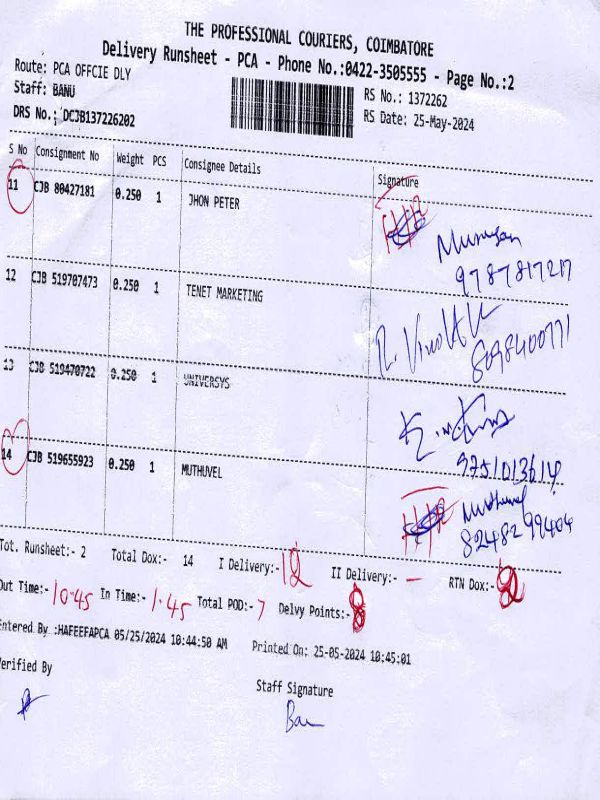 THE PROFESSIONAL COURIERS, COIMBATORE
Delivery Runsheet - PCA - Phone No.:0422-3505555 - Page No.:2
Route: PCA OFFCIE DLY
Staff: BANU
RS No.: 1372262
DRS No.: DCJB137226202
RS Date: 25-May-2024
S No Consignment No Weight PCS Consignee Details Signature
11 CJB 80427181 0.250 1 JHON PETER
Murugan
9787817217
12 CJB 519707473 0.250 1 TENET MARKETING
8098400771
13 CJB 519470722 0.250 1 UNIVERSYS
9751013614
14 CJB 519655923 0.250 1 MUTHUVEL
Muthuvel
8248299404
Tot. Runsheet:- 2 Total Dox:- 14 I Delivery:- 12 II Delivery:- - RTN Dox:- 2
Out Time:- 10.45 In Time:- 1.45 Total POD:- 7 Delvy Points:- 8
Entered By :HAFEEFAPCA 05/25/2024 10:44:50 AM Printed On: 25-05-2024 10:45:01
Verified By
Staff Signature